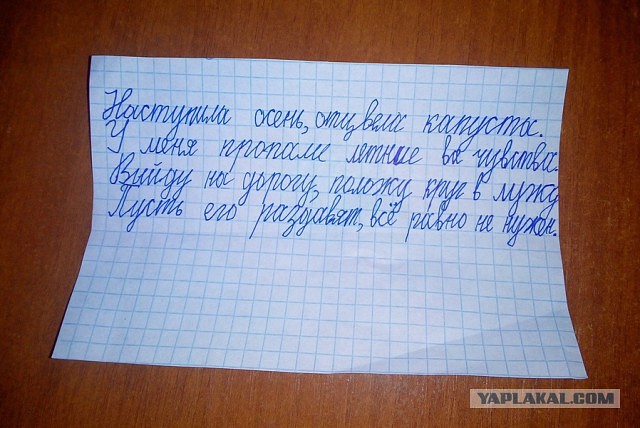 Наступила осень, отцвела капуста.
У меня пропали летние вы чувства.
Выйду на дорогу, положу круг в лужу
Пусть его раздавят, всё равно не нужен.
YAPLAKAL.COM